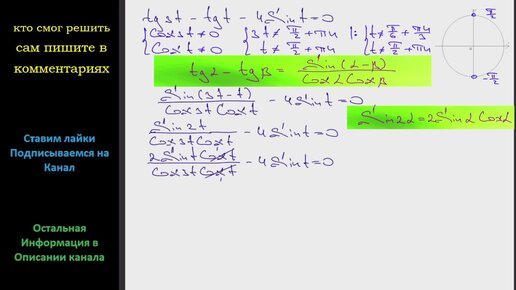 кто смог решить
сам пишите в
комментариях
Ставим лайки
Подписываемся на
Канал
Остальная
Информация в
Описании канала
tg3t - tgt - 4Sint=0
{Cos3t≠0 {3t≠π/2+πn |:3 {t≠π/6+πn/3
{Cost≠0 {t≠π/2+πn {t≠π/2+πn
π/2
-π/2
tgα - tgβ = Sin(α-β)/CosαCosβ
Sin(3t-t)/Cos3tCost - 4Sint=0
Sin2α=2SinαCosα
Sin2t/Cos3tCost - 4Sint=0
2SintCost/Cos3tCost - 4Sint=0